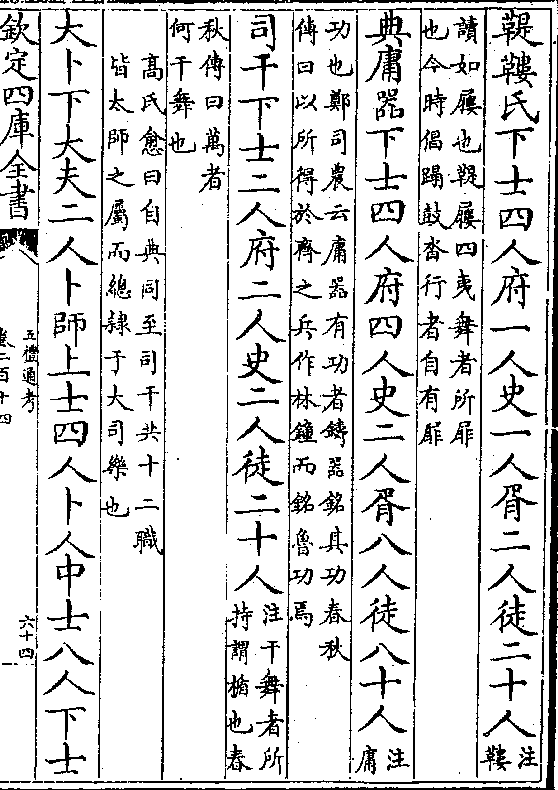 鞮鞻氏下士四人府一人史一人胥二人徒二十人注鞻
讀如屨也鞮屨四夷舞者所屝
也今時倡蹋鼓沓行者自有屝
典庸器下士四人府四人史二人胥八人徒八十人注庸
功也鄭司農云庸器有功者鑄器銘其功春秋
傳曰以所得於齊之兵作林鐘而銘魯功焉
司干下士二人府二人史二人徒二十人注干舞者所
持謂楯也春
秋傳曰萬者
何干舞也
高氏愈曰自典同至司干共十二職
皆太師之屬而總隸于大司樂也
大卜下大夫二人卜師上士四人卜人中士八人下士
欽定四庫全書
五禮通考
卷二百十四
六十四